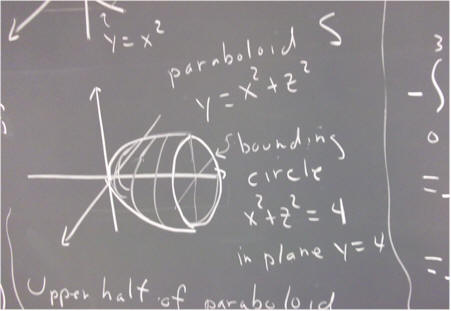 y = x²
paraboloid S
y = x² + z²
bounding
circle
x² + z² = 4
in plane y = 4
Upper half of paraboloid
3
- ∫
0
=
=